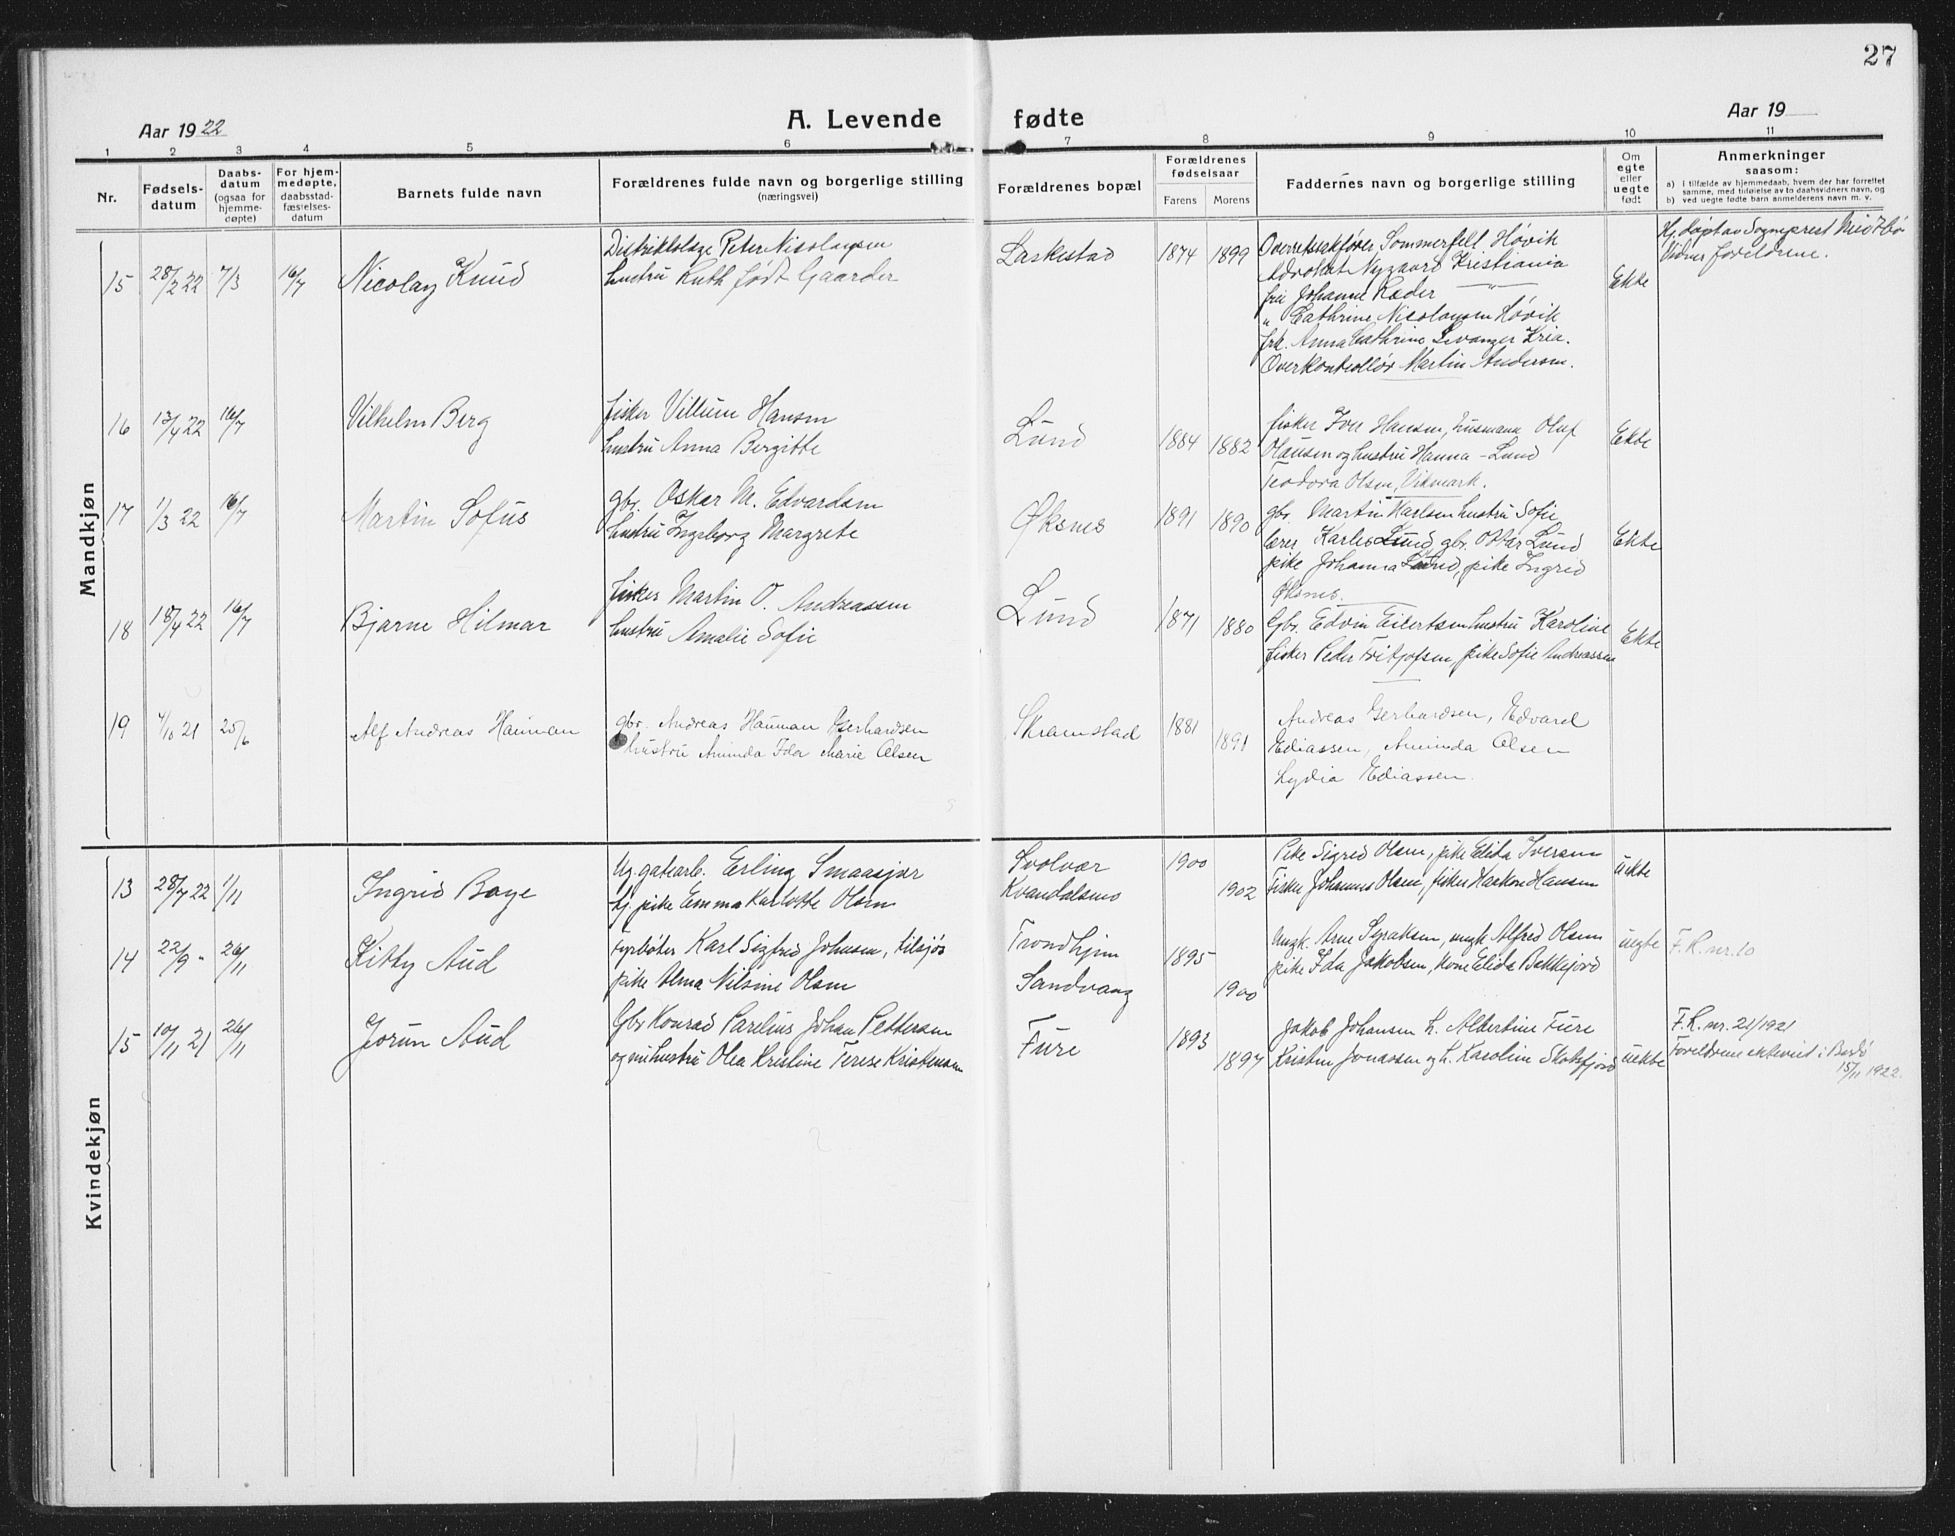 27
Aar 1922
A. Levende fødte
Aar 19
1 2 3 4 5 6 7 8 9 10 11
Nr.
Fødsels-
datum
Daabs-
datum
(ogsaa for
hjemme-
døpte)
For hjem-
medøpte,
daabsstad-
fæstelses-
datum
Barnets fulde navn
Forældrenes fulde navn og borgerlige stilling
(næringsvei)
Forældrenes bopæl
Forældrenes
fødselsaar
Farens Morens
Faddernes navn og borgerlige stilling
Om
egte
eller
uegte
født
Anmerkninger
saasom:
a) i tilfælde av hjemmedaab, hvem der har forrettet
samme, med tilføielse av to daabsvidners navn, og
b) ved uegte fødte barn anmelderens navn m. v.
Mandkjøn
15 28/2 22 7/3 16/7
Nicolay Knud
Distriktslæge Peter Nicolaysen
hustru Ruth født Gaarder
Laskestad
1874 1899
Overretssakfører Sommerfelt Høvik
Advokat Nygaard Kristiania
frú Johanne Ræder — " —
" Cathrine Nicolaysen Høvik
frk. Anna Cathrine Levanger Kria.
Overkontrollør Martin Andersen.
Ekte
Hj. døpt av Sogneprest
Vidner foreldrene.
16 13/4 22 16/7
Vilhelm Berg
fisker Villum Hansen
hustru Anna Bergitte
Lund
1884 1882
fisker Hansen, husmann Oluf
Olausen og hustru Hanna - Lund
Teodora Olsen, Vikmark.
Ekte
17 1/3 22 16/7
Martin Sofus
gbr. Oskar M. Edvardsen
hustru Ingeborg Margrete
Øksnes
1891 1890
gbr. Martin Karlsen hustru Sofie
lærer Karl Lund gbr. Ottar Lund
pike Johanna Lund, pike Ingrid
Øksnes.
Ekte
18 18/4 22 16/7
Bjarne Hilmar
fisker Martin O. Andreassen
hustru Amalie Sofie
Lund
1871 1880
Gbr. Edvin Eilertsen hustru Karoline
fisker Peder Fritjofsen, pike Sofie Andreassen
Ekte
19 4/10 21 25/6
Alf Andreas Hauman
gbr. Andreas Hauman Gerhardsen
hustru Aminda Ida Marie Olsen
Skramstad
1881 1891
Andreas Gerhardsen, Edvard
Ediassen, Aminda Olsen
Lydia Ediassen.
Kvindekjøn
13 28/7 22 1/11
Ingrid Baye
Ug. gatearb. Erling Smaasjør
hj. pike Emma Karlotte Olsen
Svolvær
Kvandalsnes
1900 1902
Pike Sigred Olsen, pike Elida Iversen
Fisker Johannes Olsen, fisker Haakon Hansen
uekte
14 22/9 " 26/11
Kitty Aud
Fyrbøter Karl Sigfred Johnsen, tilsjøs
pike Alma Nilsine Olsen
Trondhjem
Sandvang
1895 1900
Ungk. Arne Syraksen, ungk Alfred Olsen
pike Ida Jakobsen, kone Elida Bakkejord
uegte
F. R. nr. 10
15 10/11 21 26/11
Jorun Aud
Gbr Konrad Parelius Johan Pettersen
og nu hustru Olea Kristine Terese Kristensen
Fure
1893 1897
Jakob Johansen h. Albertine Fure
Kristen Jonassen og h. Karoline Skotsfjord
uekte
F. R. nr. 21/1921
Foreldrene ekteviet i Bodø
15/11 1922.